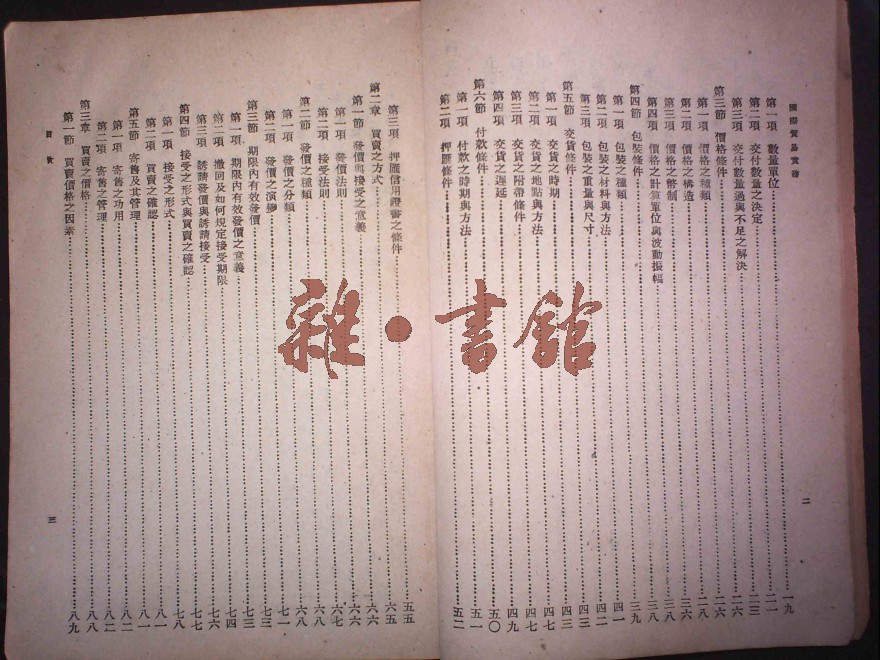 國際貿易實務
第一項 數量單位 一九
第二項 交付數量之決定 二一
第三項 交付數量過與不足之解決 二三
第三節 價格條件 二六
第一項 價格之種類 二六
第二項 價格之構造 二八
第三項 價格之幣制 三六
第四項 價格之計算單位與波動振幅 三八
第四節 包裝條件 三八
第一項 包裝之種類 三九
第二項 包裝之材料與方法 四一
第三項 包裝之重量與尺寸 四二
第五節 交貨條件 四三
第一項 交貨之時期 四三
第二項 交貨之地點與方法 四七
第三項 交貨之附帶條件 四七
第四項 交貨之遲延 四九
第六節 付款條件 五〇
第一項 付款之時期與方法 五一
第二項 押匯條件 五二
二
第三項 押匯信用證書之條件 五五
第二章 買賣之方式 六五
第一節 發價與接受之意義 六六
第一項 發價法則 六六
第二項 接受法則 六七
第二節 發價之種類 六八
第一項 發價之分類 六八
第二項 發價之演變 七一
第三節 期限內有效發價 七三
第一項 期限內有效發價之意義 七三
第二項 撤回及如何規定接受期限 七四
第三項 誘請發價與誘請接受 七六
第四節 接受之形式與買賣之確認 七七
第一項 接受之形式 七八
第二項 買賣之確認 八一
第五節 寄售及其管理 八一
第一項 寄售之功用 八二
第二項 寄售之管理 八二
第三章 買賣之價格 八八
第一節 買賣價格之因素 八九
目次
三
雜·書館